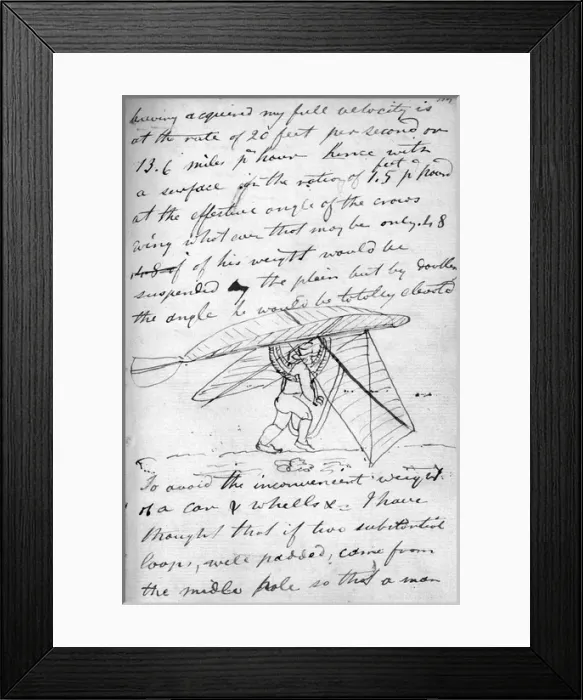 having acquired my full velocity is
at the rate of 20 feet per second or
13.6 miles pr hour hence with
feet a
a surface in the ratio of 1.5 p pound
at the effective angle of the crows
wing what ever that may be only .48
of of his weight would be
suspended by the plain but by doubling
the angle he would be totally elevated
To avoid the inconvenient weight
of a car & wheells & I have
thought that if two substantial
loops, well padded, came from
the midle pole so that a man